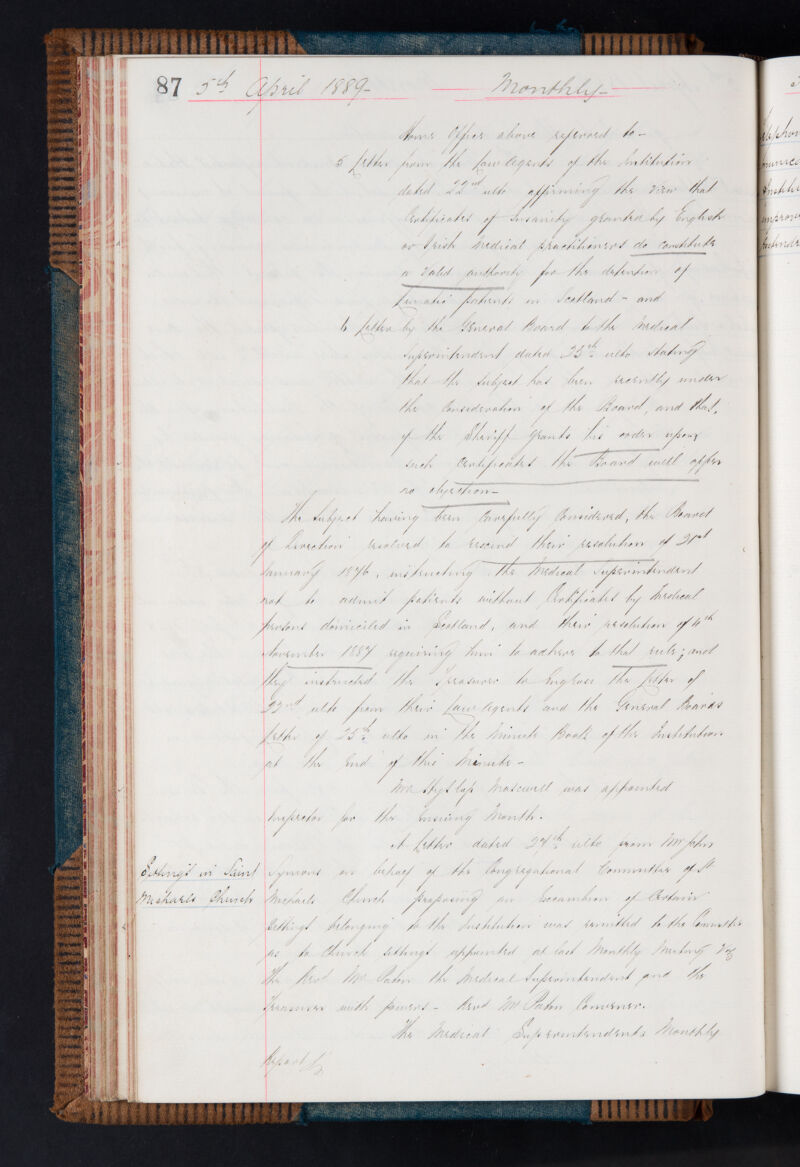 87 5th April 1889 - Monthly -
Home Office above referred to -
5 Letter from the Law Agents of the Institution
dated 22nd ulto affirming the view that
Certificates of Insanity granted by English
or Irish Medical practitioners do constitute
a valid authority for the detention of
Lunatic patients in Scotland - and
6 Letter by the General Board to the Medical
Superintendent dated 25th ulto stating
that the subject has been recently under
the Consideration of the Board, and that,
if the Sheriff grants his order upon
such Certificates the Board will offer
no objection -
The Subject having been Carefully Considered, the Board
of Direction resolved to rescind their resolution of 21st
January 1876, instructing the Medical Superintendent
not to admit patients without Certificates by Medical
persons domiciled in Scotland, and their resolution of 4th
November 1887 requiring him to adhere to that rule; and
they instructed the Treasurer to Engross the Letter of
22nd ulto from their Law Agents and the General Boards
Letter of 25th ulto in the Minute Book of the Institution
at the End of this Minute -
Mr Hyslop Maxwell was appointed
Inspector for the Ensuing Month.
A Letter dated 27th ulto from Mr John
Sittings in Saint
Michaels Church
Symons on behalf of the Congregational Committee of St
Michaels Church proposing an Excambion of Certain
Sittings belonging to the Institution was remitted to the Committee
as to Church sittings appointed at last Monthly Meeting viz
The Revd Mr Paton the Medical Superintendent and the
Treasurer with powers - Revd Mr Paton Convener.
The Medical Superintendents Monthly
Report